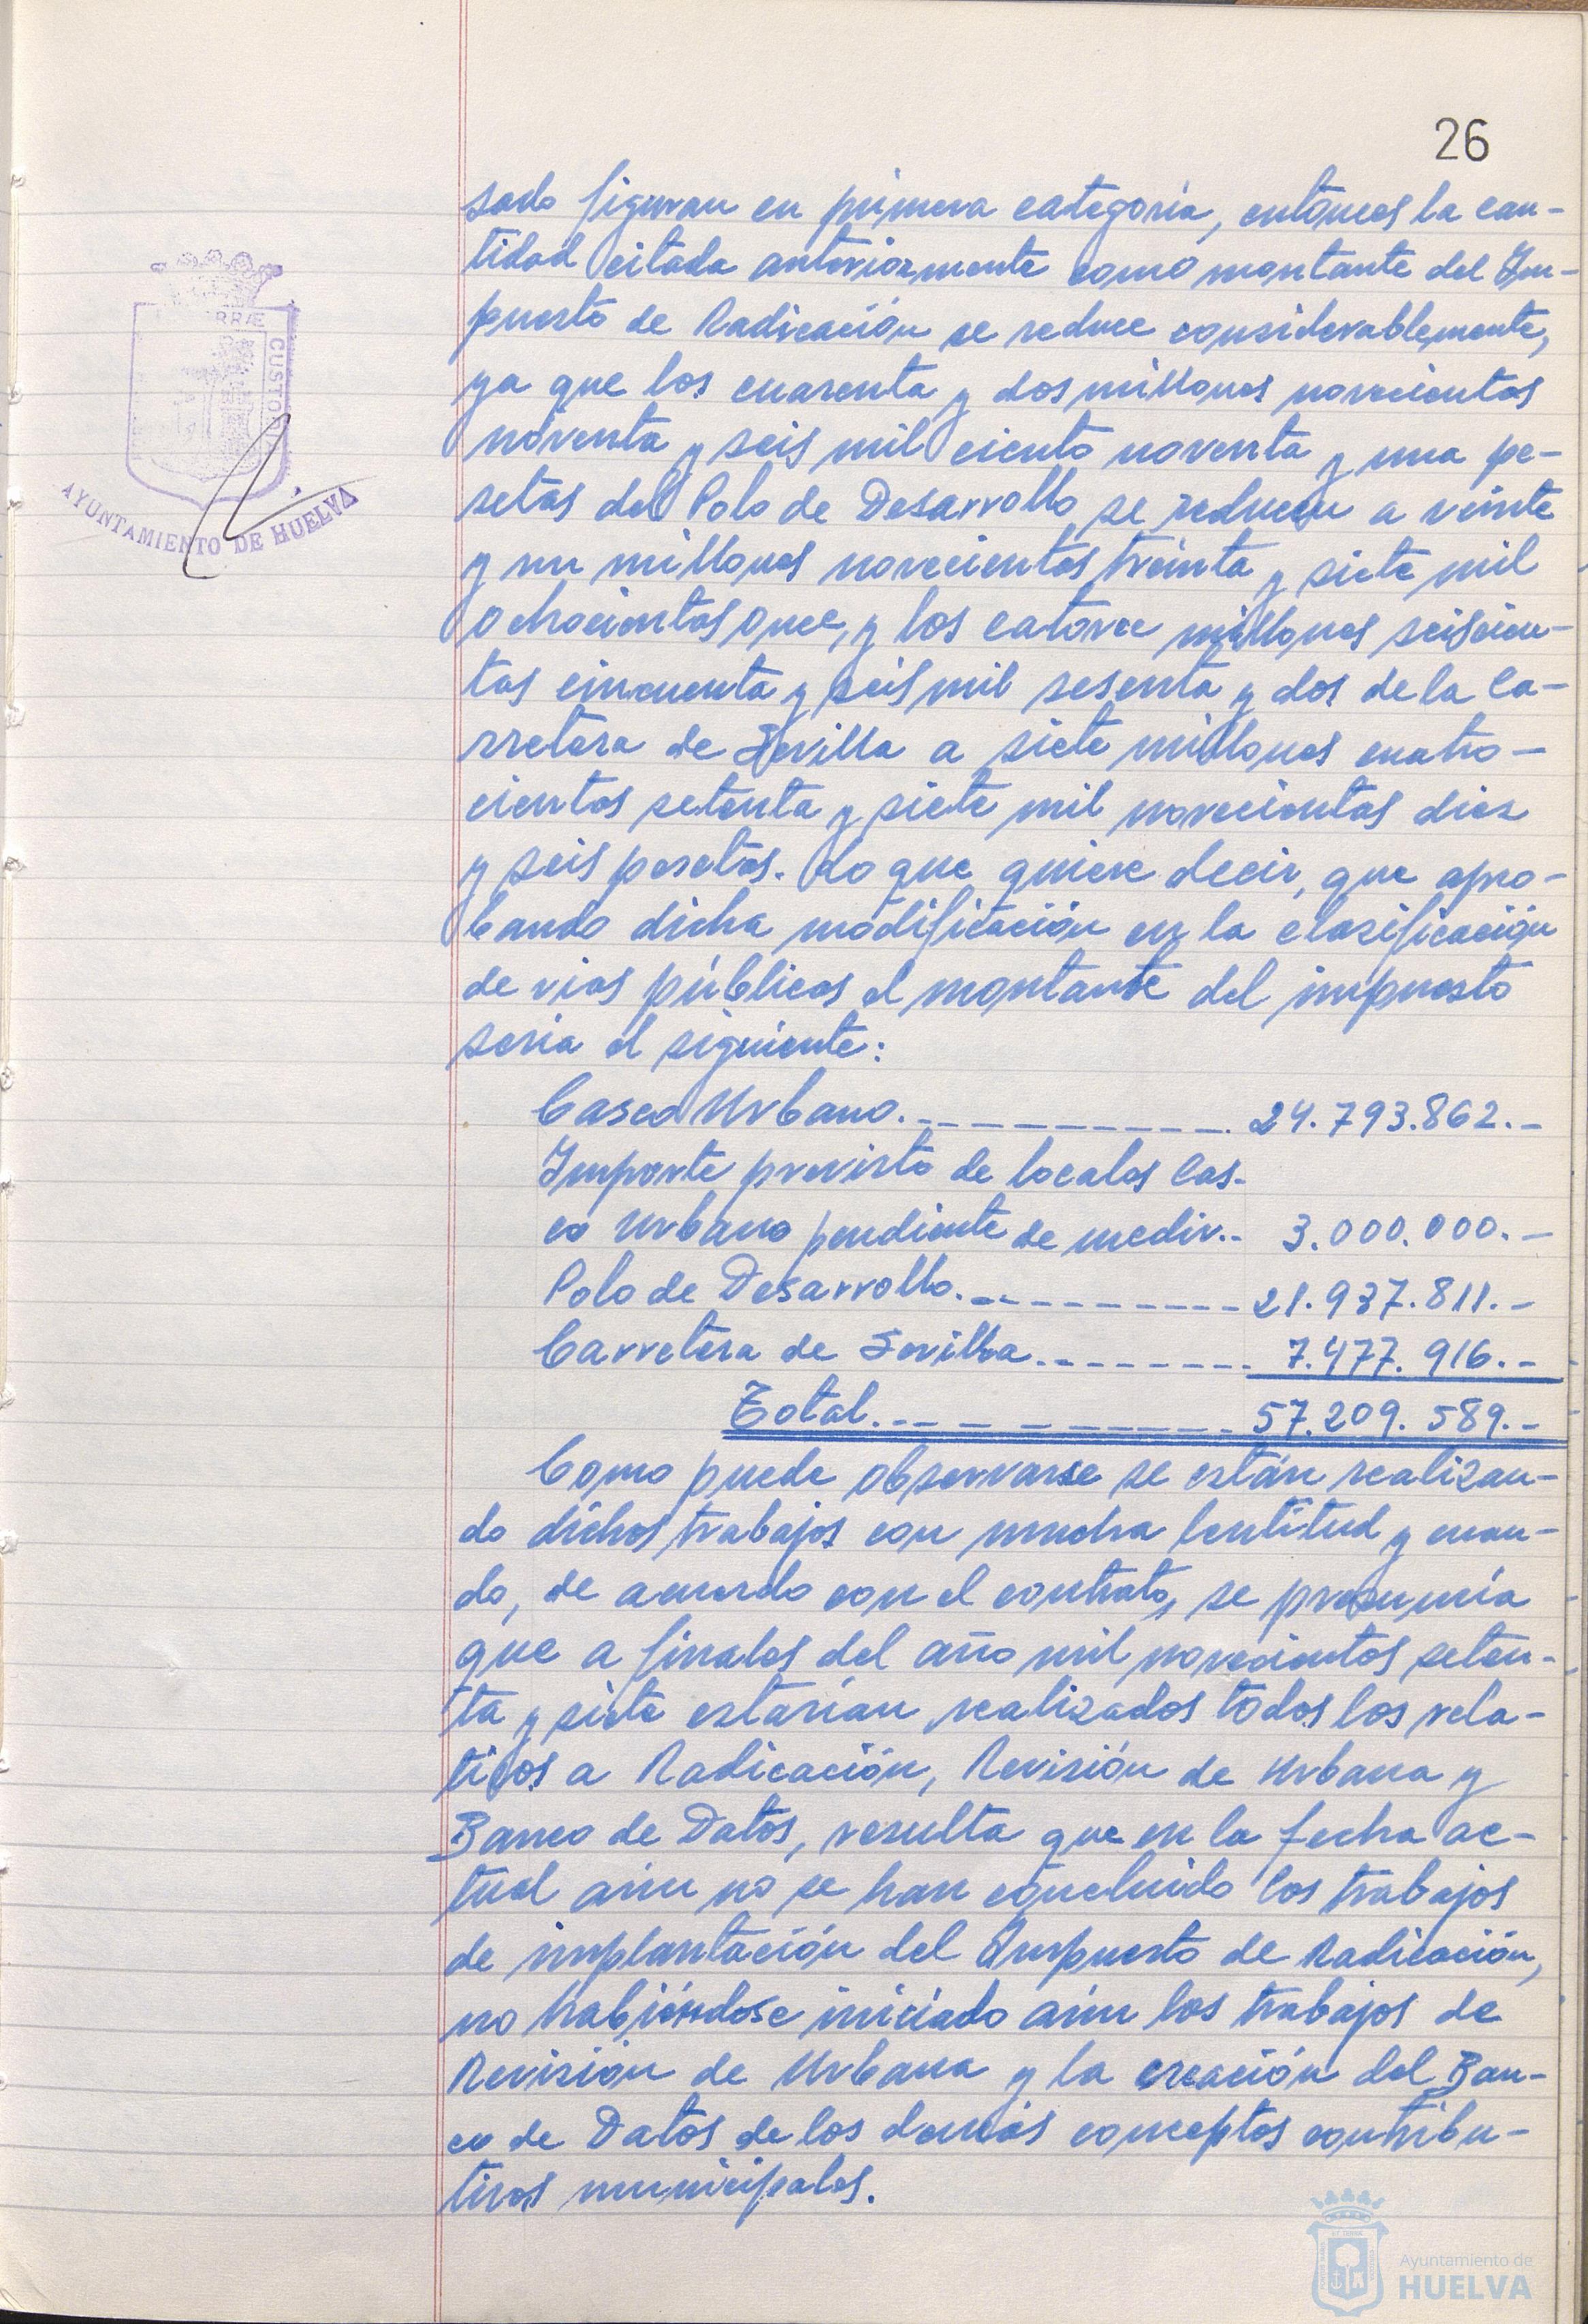 26
sado figuran en primera categoría, entonces la can-
tidad citada anteriormente como montante del Im-
puesto de Radicación se reduce considerablemente,
ya que los cuarenta y dos millones novecientos
noventa y seis mil ciento noventa y una pe-
setas del Polo de Desarrollo se reducen a veinte
y un millones novecientos treinta y siete mil
ochocientos once, y los catorce millones seiscien-
tos cincuenta y seis mil sesenta y dos de la Ca-
rretera de Sevilla a siete millones cuatro-
cientos setenta y siete mil novecientos diez
y seis pesetas. Lo que quiere decir, que apro-
bando dicha modificación en la clasificación
de vias públicas el montante del impuesto
seria el siguiente:
Casco Urbano. 24.793.862.-
Importe previsto de locales Cas-
co Urbano pendiente de medir.. 3.000.000.-
Polo de Desarrollo. 21.937.811.-
Carretera de Sevilla. 7.477.916.-
Total. 57.209.589.-
Como puede observarse se están realizan-
do dichos trabajos con mucha lentitud y cuan-
do, de acuerdo con el contrato, se presumía
que a finales del año mil novecientos seten-
ta y siete estarían realizados todos los rela-
tivos a Radicación, Revisión de Urbana y
Banco de Datos, resulta que en la fecha ac-
tual aún no se han concluido los trabajos
de implantación del Impuesto de Radicación,
no habiéndose iniciado aún los trabajos de
Revisión de Urbana y la creación del Ban-
co de Datos de los demás conceptos contribu-
tivos municipales.
RRÆ CUSTO
AYUNTAMIENTO DE HUELVA
Ayuntamiento de
HUELVA